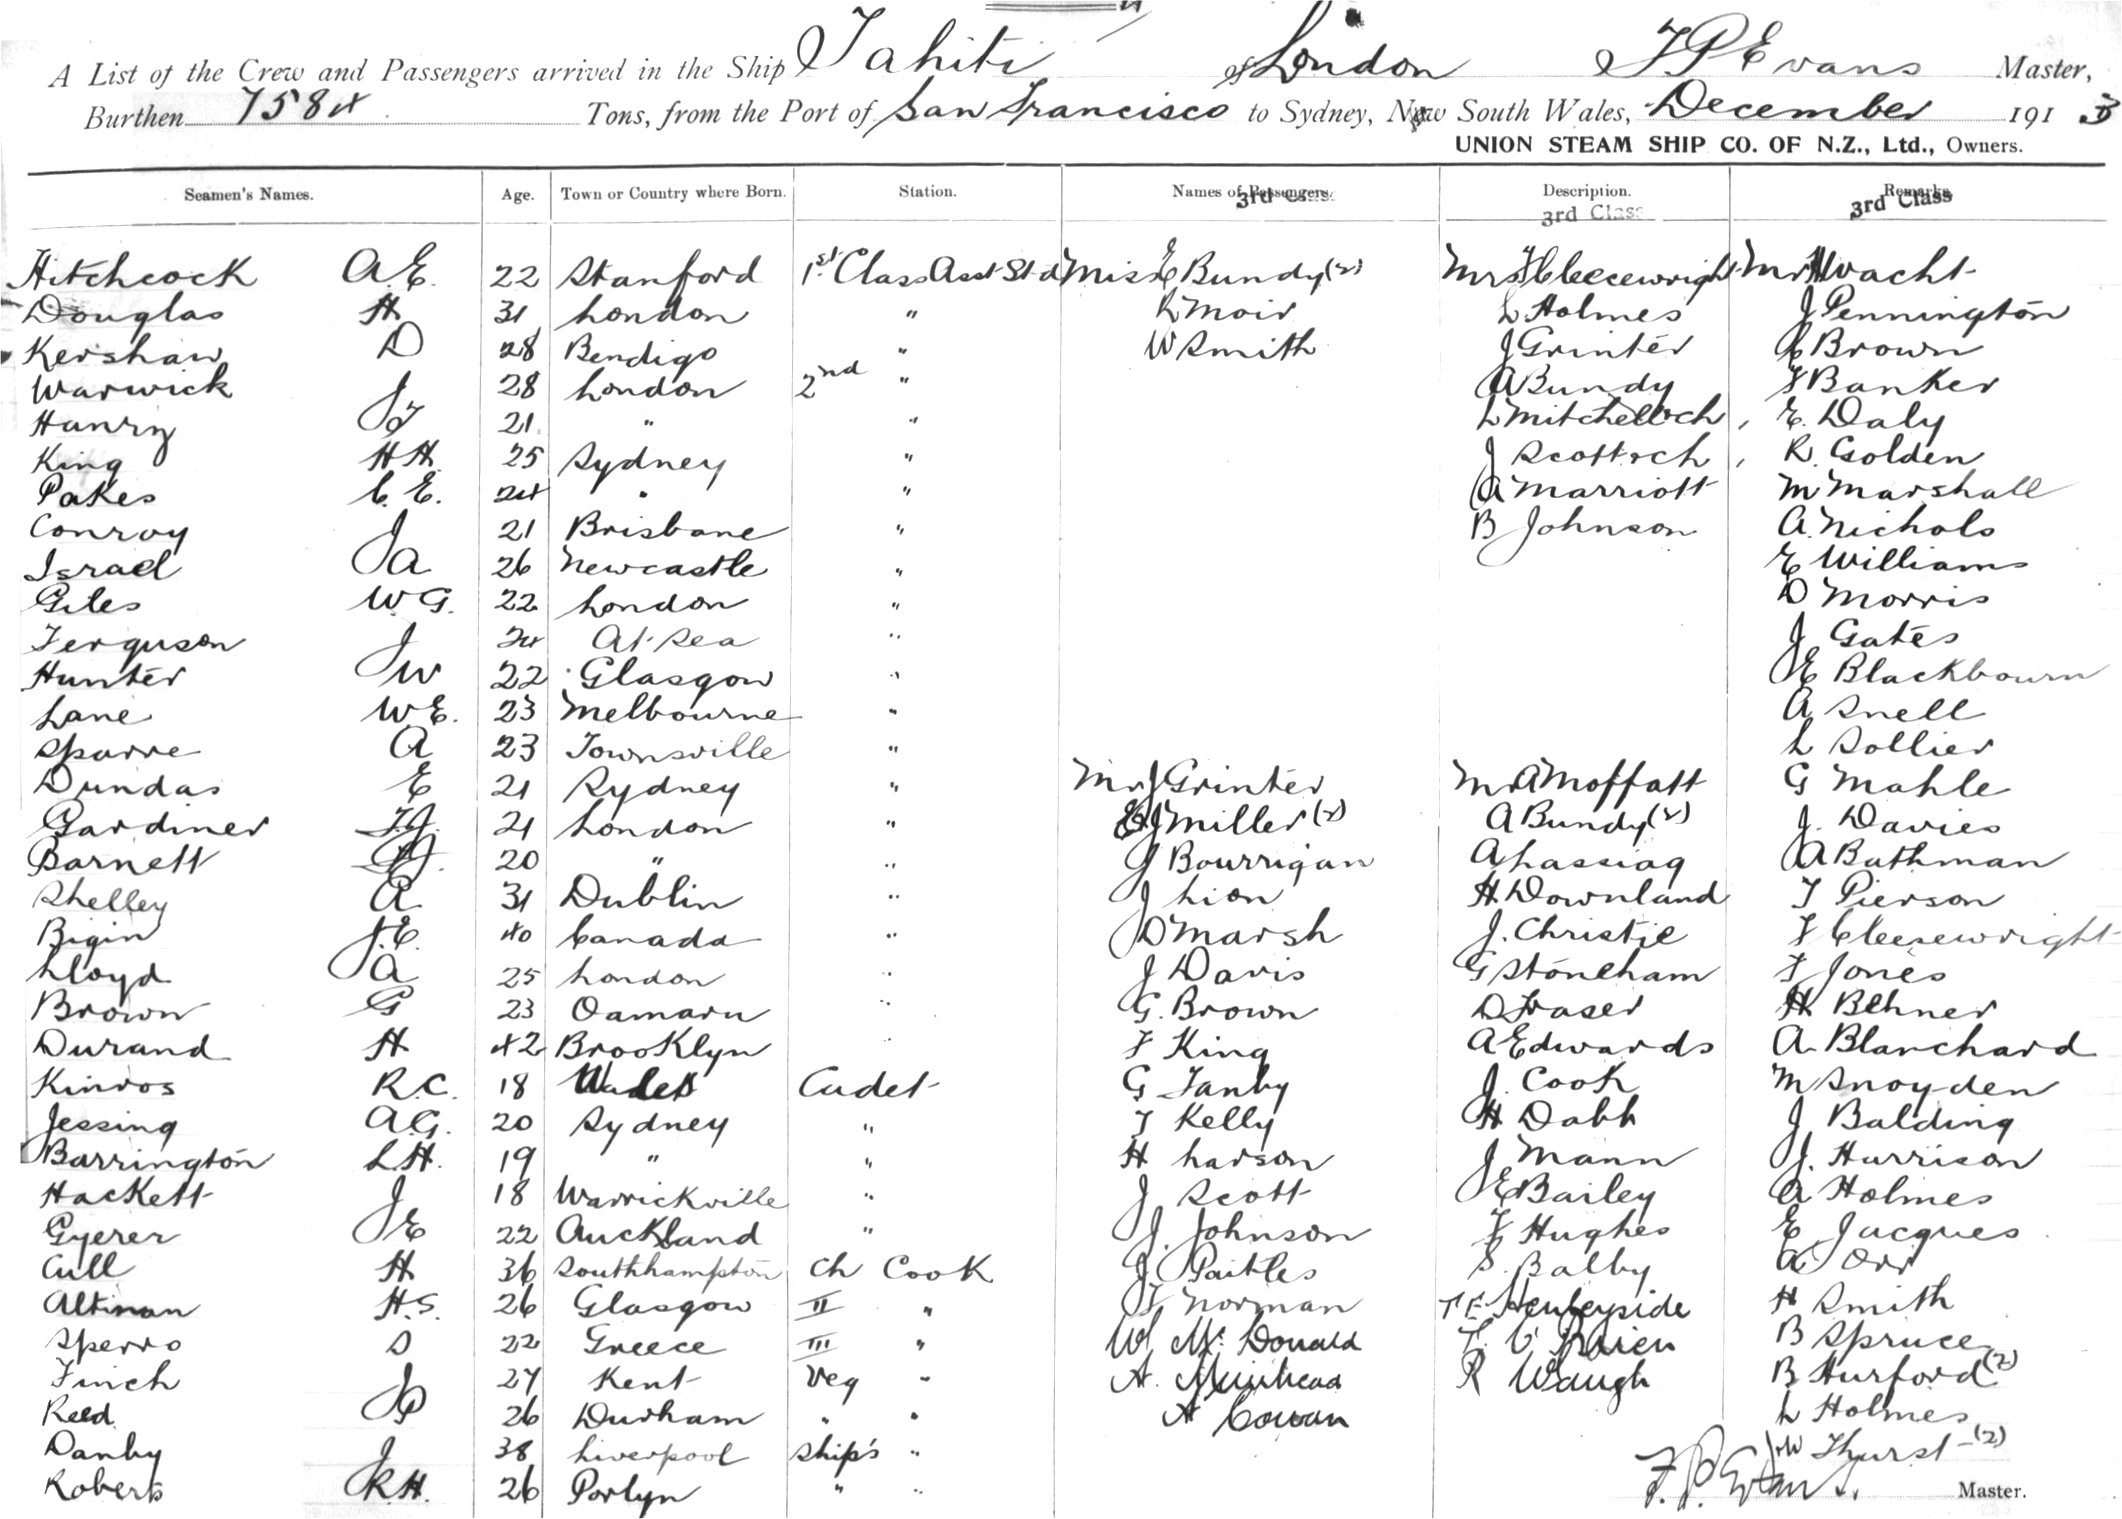 A List of the Crew and Passengers arrived in the Ship Tahiti of London F P Evans Master,
Burthen 7584 Tons, from the Port of San Francisco to Sydney, New South Wales, December 1913
UNION STEAM SHIP CO. OF N.Z., Ltd., Owners.
Seamen's Names. Age. Town or Country where Born. Station. Names of Passengers. Description. Remarks
3rd Class 3rd Class 3rd Class
Hitchcock A.E. 22 Stanford 1st Class Asst Std Miss E Bundy (2) Mrs F Cleesewright Mr H Wacht
Douglas H 31 London " R Moir L Holmes J Pennington
Kershaw D 28 Bendigo " W Smith J Grinter C Brown
Warwick J 28 London 2nd " A Bundy F Banker
Hanry J 21 " " L Mitchell & ch, E. Daly
King H H. 25 Sydney " J Scott & ch, R. Golden
Pakes C. E. 24 " " A Marriott M Marshall
Conroy J 21 Brisbane " B Johnson A. Nichols
Israel J A 26 Newcastle " E Williams
Giles W.G. 22 London " D Morris
Ferguson J 24 At Sea " J Gates
Hunter J W 22 Glasgow " E Blackbourn
Lane W E. 23 Melbourne " A Snell
Sparre A 23 Townsville " L Sollier
Dundas E 21 Sydney " Mr J Grinter Mr A Moffatt G Mahle
Gardiner F.J. 21 London " E J Miller (2) A Bundy (2) J. Davies
Barnett 20 " " J Bourrigan A Lassiag A Bathman
Shelley A 31 Dublin " J Lion H. Downland F Pierson
Bigin J.E. 40 Canada " D Marsh J. Christie F Cleesewright
Lloyd A 25 London " J Davis G Stoneham F Jones
Brown G 23 Oamaru " G. Brown D Fraser H Behner
Durand H 42 Brooklyn " F King A Edwards A Blanchard
Kinros R.C. 18 Wales Cadet G Tanby J. Cook M Snoyden
Jessing A.G. 20 Sydney " T Kelly H Dabb J Balding
Barrington L.H. 19 " " H Larson J Mann J. Harrison
Hackett J 18 Warrickville " J Scott J E Bailey A Holmes
Gyerer J E 22 Auckland " J. Johnson F Hughes E Jacques
Cull H 36 Southhampton Ch Cook J Paitles S. Balby A Orr
Altman H.S. 26 Glasgow II " F Norman H Smith
Sperro S 22 Greece III " W Mc Donald O'Brien B Spruce
Finch J 27 Kent Veg " A. Muirhead R Waugh B Hurford (2)
Reed P 26 Durham " " A Cowan L Holmes
Danby J 38 Liverpool Ship's " Thurst (2)
Roberts R.H. 26 Porlyn " " F. P. Evans. Master.